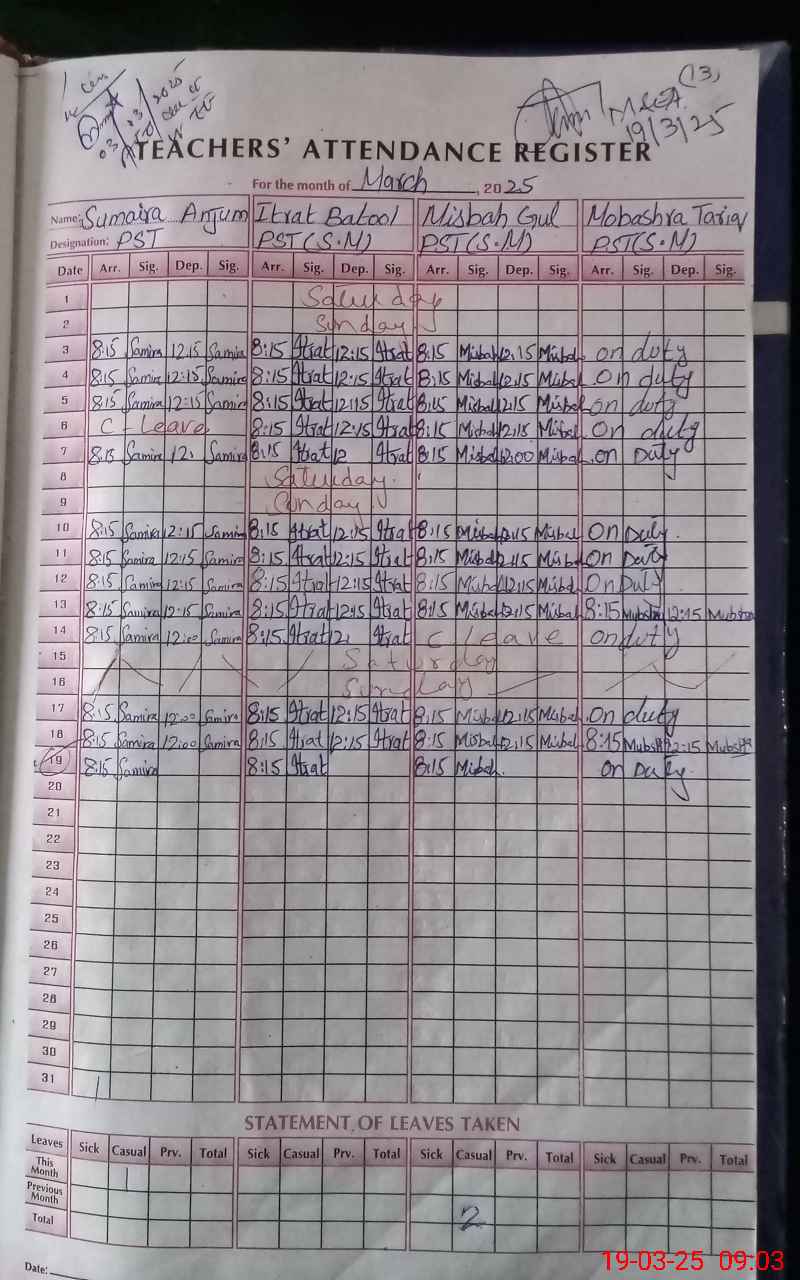 (13)
03/03/2025
M&EA
19/3/25
TEACHERS' ATTENDANCE REGISTER
For the month of March, 2025
Name: Sumaira Anjum Itrat Batool Misbah Gul Mobashra Tariq
Designation: PST PST(S.M) PST(S.M) PST(S.M)
Date Arr. Sig. Dep. Sig. Arr. Sig. Dep. Sig. Arr. Sig. Dep. Sig. Arr. Sig. Dep. Sig.
1 Saturday
2 Sunday
3 8:15 Samira 12:15 Samira 8:15 Itrat 12:15 Itrat 8:15 Misbah 12:15 Misbah on duty
4 8:15 Samira 12:15 Samira 8:15 Itrat 12:15 Itrat 8:15 Misbah 12:15 Misbah on duty
5 8:15 Samira 12:15 Samira 8:15 Itrat 12:15 Itrat 8:15 Misbah 12:15 Misbah on duty
6 C-Leave 8:15 Itrat 12:15 Itrat 8:15 Misbah 12:15 Misbah On duty
7 8:15 Samira 12: Samira 8:15 Itrat 12 Itrat 8:15 Misbah 12:00 Misbah on Duty
8 Saturday.
9 Sunday
10 8:15 Samira 12:15 Samira 8:15 Itrat 12:15 Itrat 8:15 Misbah 12:15 Misbah On Duty.
11 8:15 Samira 12:15 Samira 8:15 Itrat 12:15 Itrat 8:15 Misbah 12:15 Misbah On Duty
12 8:15 Samira 12:15 Samira 8:15 Itrat 12:15 Itrat 8:15 Misbah 12:15 Misbah On Duty
13 8:15 Samira 12:15 Samira 8:15 Itrat 12:15 Itrat 8:15 Misbah 12:15 Misbah 8:15 Mubshra 12:15 Mubshra
14 8:15 Samira 12:00 Samira 8:15 Itrat 12: Itrat C Leave on duty
15 Saturday
16 Sunday
17 8:15 Samira 12:00 Samira 8:15 Itrat 12:15 Itrat 8:15 Misbah 12:15 Misbah On duty
18 8:15 Samira 12:00 Samira 8:15 Itrat 12:15 Itrat 8:15 Misbah 12:15 Misbah 8:15 Mubshra 12:15 Mubshra
19 8:15 Samira 8:15 Itrat 8:15 Misbah. On Duty.
20
21
22
23
24
25
26
27
28
29
30
31
STATEMENT OF LEAVES TAKEN
Leaves Sick Casual Prv. Total Sick Casual Prv. Total Sick Casual Prv. Total Sick Casual Prv. Total
This Month 1
Previous Month
Total 2
Date:
19-03-25 09:03